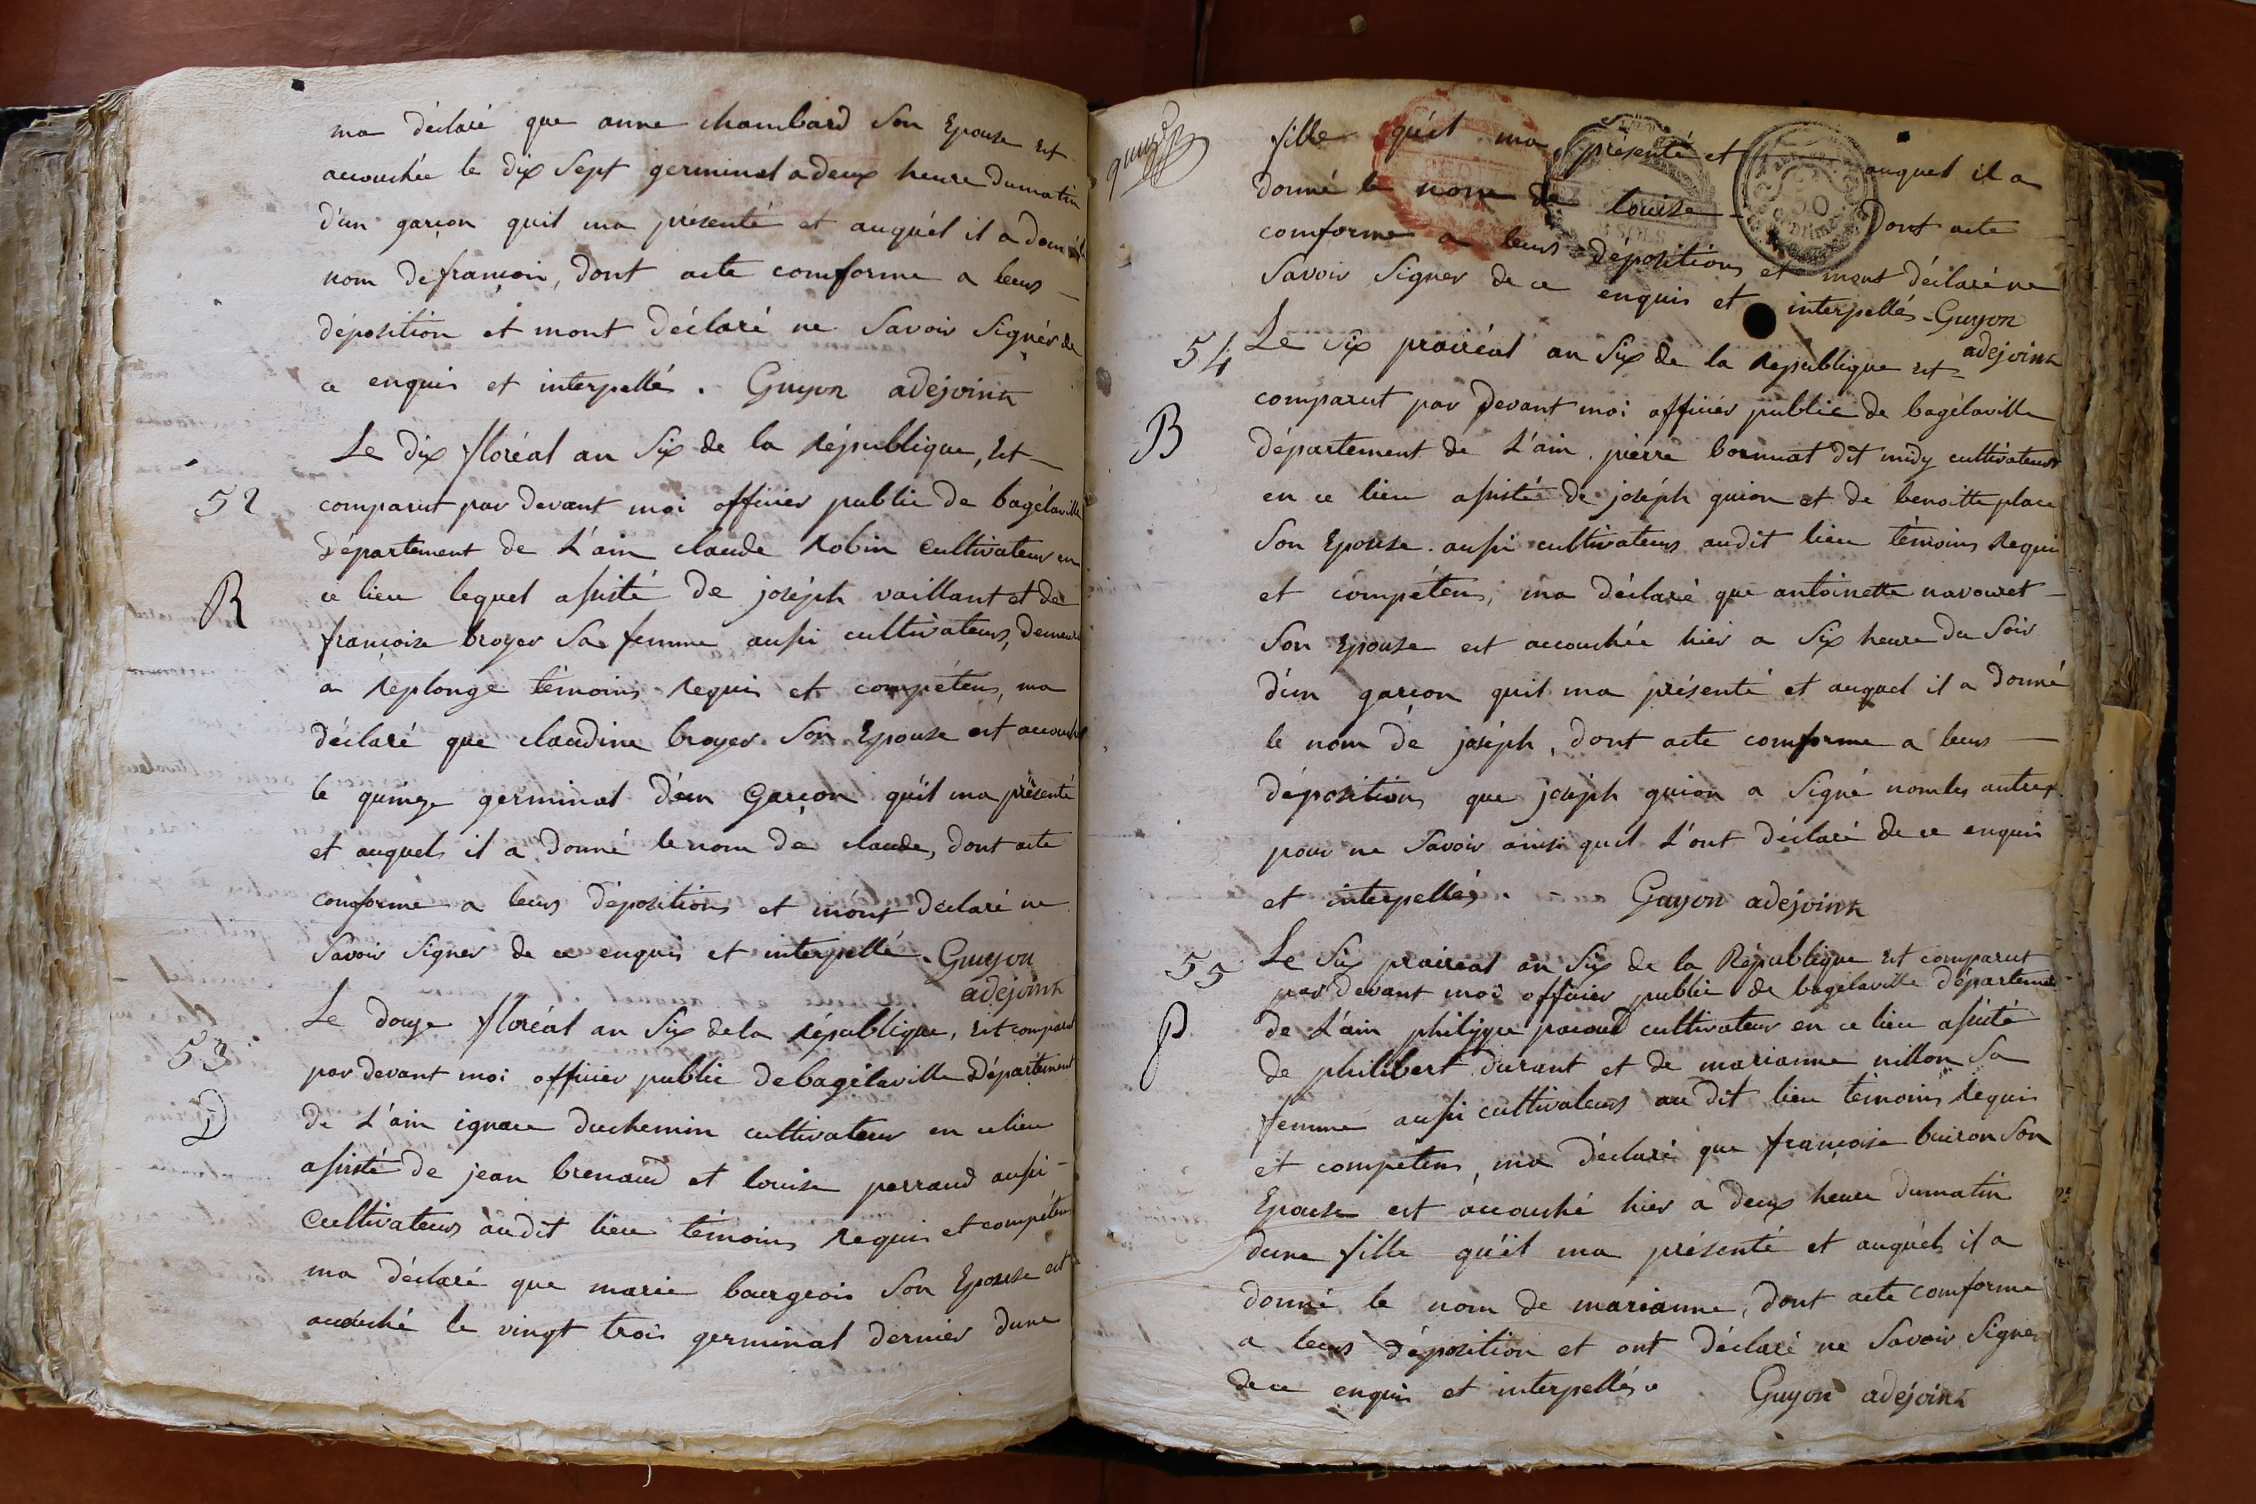 ma déclaré que anne chambard Son Epouse est
accouchée le dix Sept germinal a deux heure dumatin
d'un garçon quil ma présenté et auquél il a donné le
nom defrançois, dont acte comforme a leurs
déposition et mont déclaré ne Savoir Signér de
ce enquis et interpellés. Guyon adéjoint
52
Le dix floréal an Six de la république, Est
comparut par devant moi officier public de bagélaville
Département de L'ain claude robin Cultivateur en
R
ce lieu lequel assisté de joséph vaillant et de
françoise broyer Sa femme aussi cultivateurs, demeurt
a replonge témoins requis et compétens, ma
déclaré que claudine broyer Son Epouse est accouché
le quinze germinal d'un Garçon qu'il ma présenté
et auquel il a donné le nom de claude, dont acte
comforme a leurs dépositions et mont déclaré ne
Savoir Signer de ce enquis et interpellé. Guyon
adéjoint
53
Le douze floréal an Six dela république, Est comparut
par devant moi officier public debagélaville Département
D
de L'ain ignace duchemin cultivateur en celieu
assisté de jean brenaud et louise perraud aussi
Cultivateurs audit lieu témoins requis et compétens
ma déclaré que marie bourgeois Son Epouse est
accouché le vingt trois germinal dernier dune
fille qu'il ma présenté et auquel il a
donné le nom de louise Dont acte
comforme a leurs dépositions et mont déclaré ne
Savoir Signer de ce enquis et interpellés. Guyon
adéjoint
54
Le Six prairéal an Six de la république est
comparut par devant moi officiér public de bagélaville
B
Département de L'ain. pierre bornuat dit midy cultivateur
en ce lieu assisté de joséph guion et de benoitte place
Son Epouse. aussi cultivateurs audit lieu témoins requis
et compétens, ma déclaré que antoinette navouret
Son Epouse est accouchée hiér a Six heure du Soir
d'un garçon quil ma présenté et auquel il a donné
le nom de joséph, dont acte comforme a leurs
dépositions que joséph guion a Signé nonles autres
pour ne Savoir ainsi quil L'ont déclaré de ce enquis
et interpellés. Guyon adéjoint
55
Le Six prairéal an Six de la République Est comparut
par devant moi officier public de bagélaville Départemen
P
de L'ain philippe pacoud cultivateur en ce lieu assisté
de philibert durant et de marianne nillon Sa
femme aussi cultivateurs au dit lieu témoins requis
et compétens, ma déclaré que françoise buiron Son
Epouse est accouché hiér a deux heure dumatin
dune fille qu'il ma présenté et auquél il a
donné le nom de marianne, dont acte comforme
a leurs déposition et ont déclaré ne Savoir Signer
de ce enquis et interpellés. Guyon adéjoint